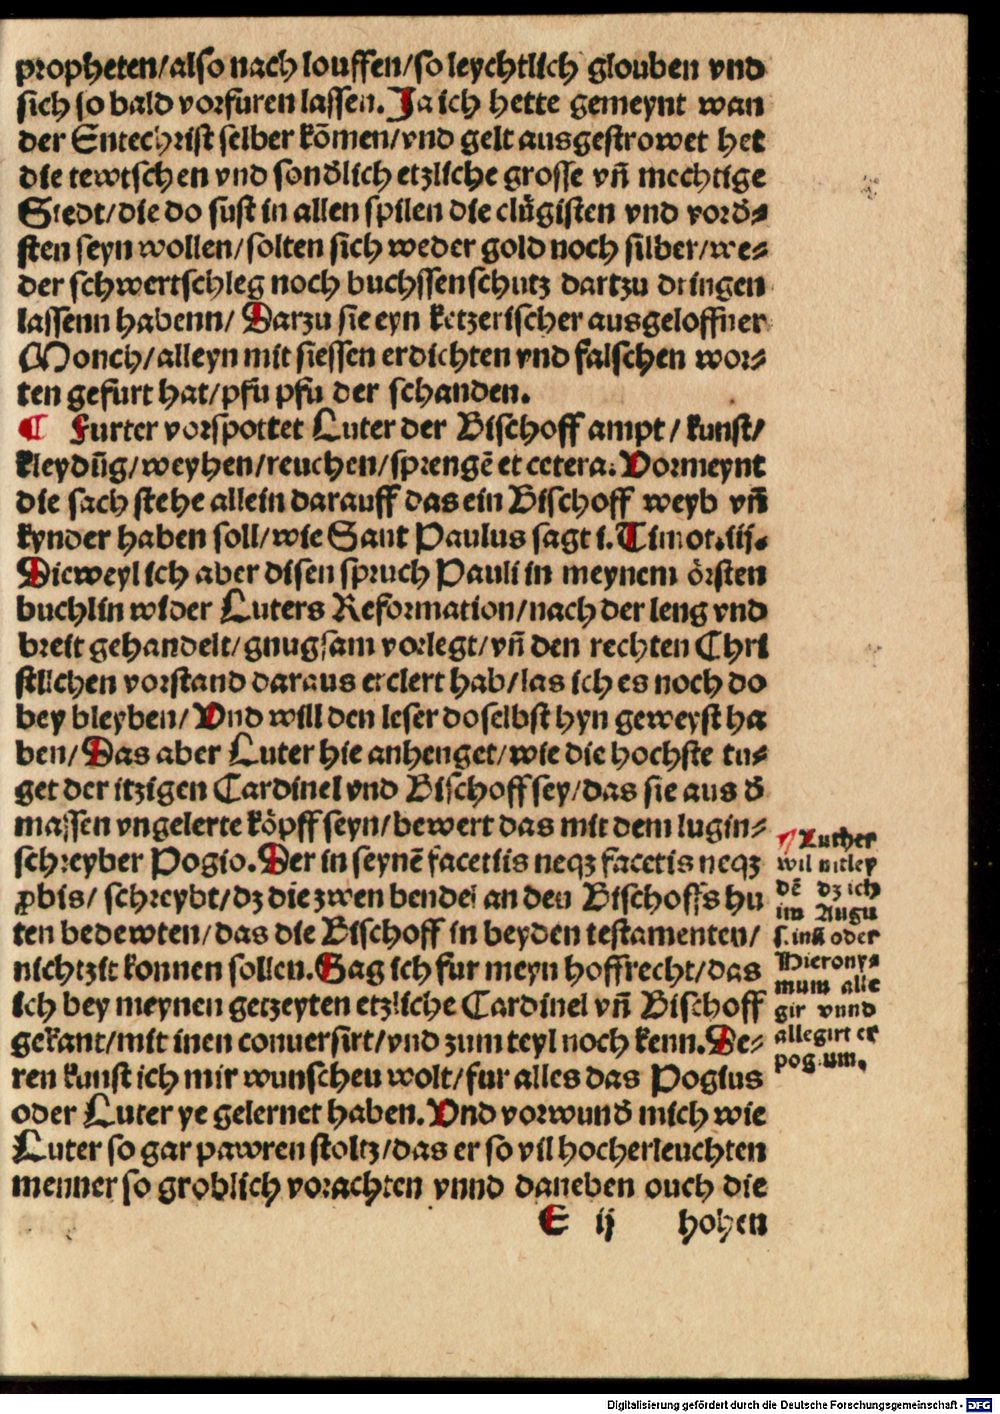 propheten/also nach louffen/so leychtlich glouben vnd
sich so bald vorfuren lassen. Ja ich hette gemeynt wan
der Entechrist selber kõmen/vnd gelt ausgestrowet het
die tewtschen vnd sondʼlich etzliche grosse vñ mechtige
Stedt/die do sust in allen spilen die clůgisten vnd vordʼ⸗
sten seyn wollen/solten sich weder gold noch silber/we⸗
der schwertschleg noch buchssenschutz dartzu dringen
lassenn habenn/ Darzu sie eyn ketzerischer ausgeloffner
Monch/alleyn mit siessen erdichten vnd falschen wor⸗
ten gefurt hat/pfu pfu der schanden.
¶ Furter vorspottet Luter der Bischoff ampt/ kunst/
kleydũg/weyhen/reuchen/sprengẽ et cetera. Vormeynt
die sach stehe allein darauff das ein Bischoff weyb vñ
kynder haben soll/wie Sant Paulus sagt i. Timot.iij.
Dieweyl ich aber disen spruch Pauli in meynem örsten
buchlin wider Luters Reformation/nach der leng vnd
breit gehandelt/gnugsam vorlegt/vñ den rechten Chri
stlichen vorstand daraus erclert hab/las ich es noch do
bey bleyben/ Vnd will den leser doselbst hyn geweyst ha
ben/ Das aber Luter hie anhenget/wie die hochste tu⸗
get der itzigen Cardinel vnd Bischoff sey/das sie aus dʼ
massen vngelerte köpff seyn/bewert das mit dem lugin⸗
schreyber Pogio. Der in seynẽ facetiis neqꝫ facetis neqꝫ
ꝓbis/ schreybt/dz die zwen bendel an den Bischoffs hu
ten bedewten/das die Bischoff in beyden testamenten/
nichtzit konnen sollen. Sag ich fur meyn hoffrecht/das
ich bey meynen getzeyten etzliche Cardinel vñ Bischoff
gekant/mit inen conuersirt/vnd zum teyl noch kenn. De⸗
ren kunst ich mir wunschen wolt/fur alles das Pogius
oder Luter ye gelernet haben. Vnd vorwundʼ mich wie
Luter so gar pawren stoltz/das er so vil hocherleuchten
menner so groblich vorachten vnnd daneben ouch die
E ij hohen
¶ Luther
wil nit ley
dẽ dz ich
im Augu
s. inũ oder
Hierony⸗
mum alle
gir vnnd
allegirt er
pogium.
Digitalisierung gefördert durch die Deutsche Forschungsgemeinschaft - DFG